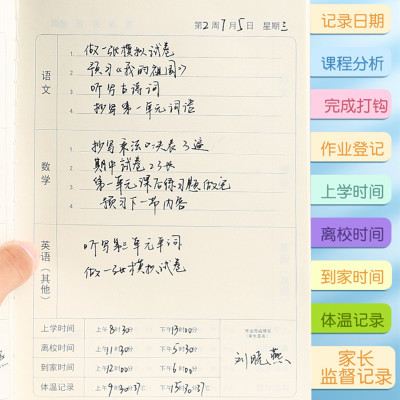 第2周1月5日 星期三
语文
1. 做一张模拟试卷
2. 预习《我的祖国》
3. 听写古诗词
4. 抄写第一单元词语
数学
1. 抄写乘法口决表3遍
2. 期中试卷23张
3. 第一单元课后练习题做完
4. 预习下一节内容
英语(其他)
听写第三单元单词
做一张模拟试卷
上学时间 上午8时30分 下午13时00分
离校时间 上午11时30分 下午5时30分
到家时间 上午12时00分 下午6时00分
体温记录 上午9时30分37℃ 下午15时30分37℃
刘晓燕
记录日期
课程分析
完成打钩
作业登记
上学时间
离校时间
到家时间
体温记录
家长
监督记录